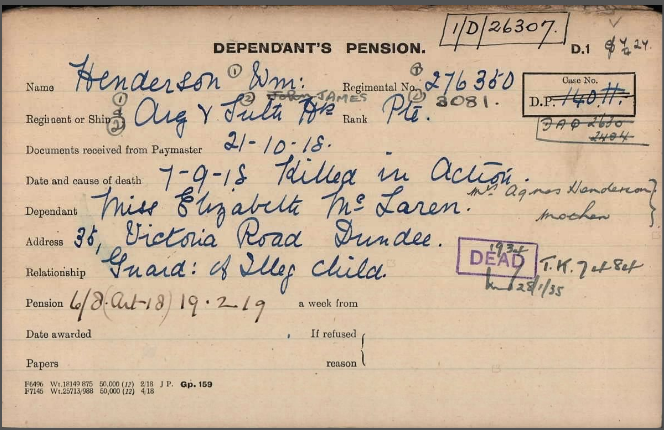 1/D/26307.
DEPENDANT'S PENSION. D.1
Name Henderson ① Wm: Regimental No. ① 276350
② John JAMES ② 3081. Case No.
Regiment or Ship ① & ② Arg & Suth Hrs Rank Pte. D.P. 140.H.
Documents received from Paymaster 21-10-18.
Date and cause of death 7-9-18 Killed in Action.
Dependant Miss Elizabeth McLaren. Mrs Agnes Henderson
Mother
Address 35, Victoria Road Dundee.
DEAD T.K. 7 at 8at
28/1/35
Relationship Guard: of Illeg child.
Pension 6/8 (Art-18) 19.2.19 a week from
Date awarded If refused
Papers reason
F6496 Wt.18149 875 50,000 (12) 2/18 J P. Gp. 159
F7146 Wt.25713/988 50,000 (12) 4/18